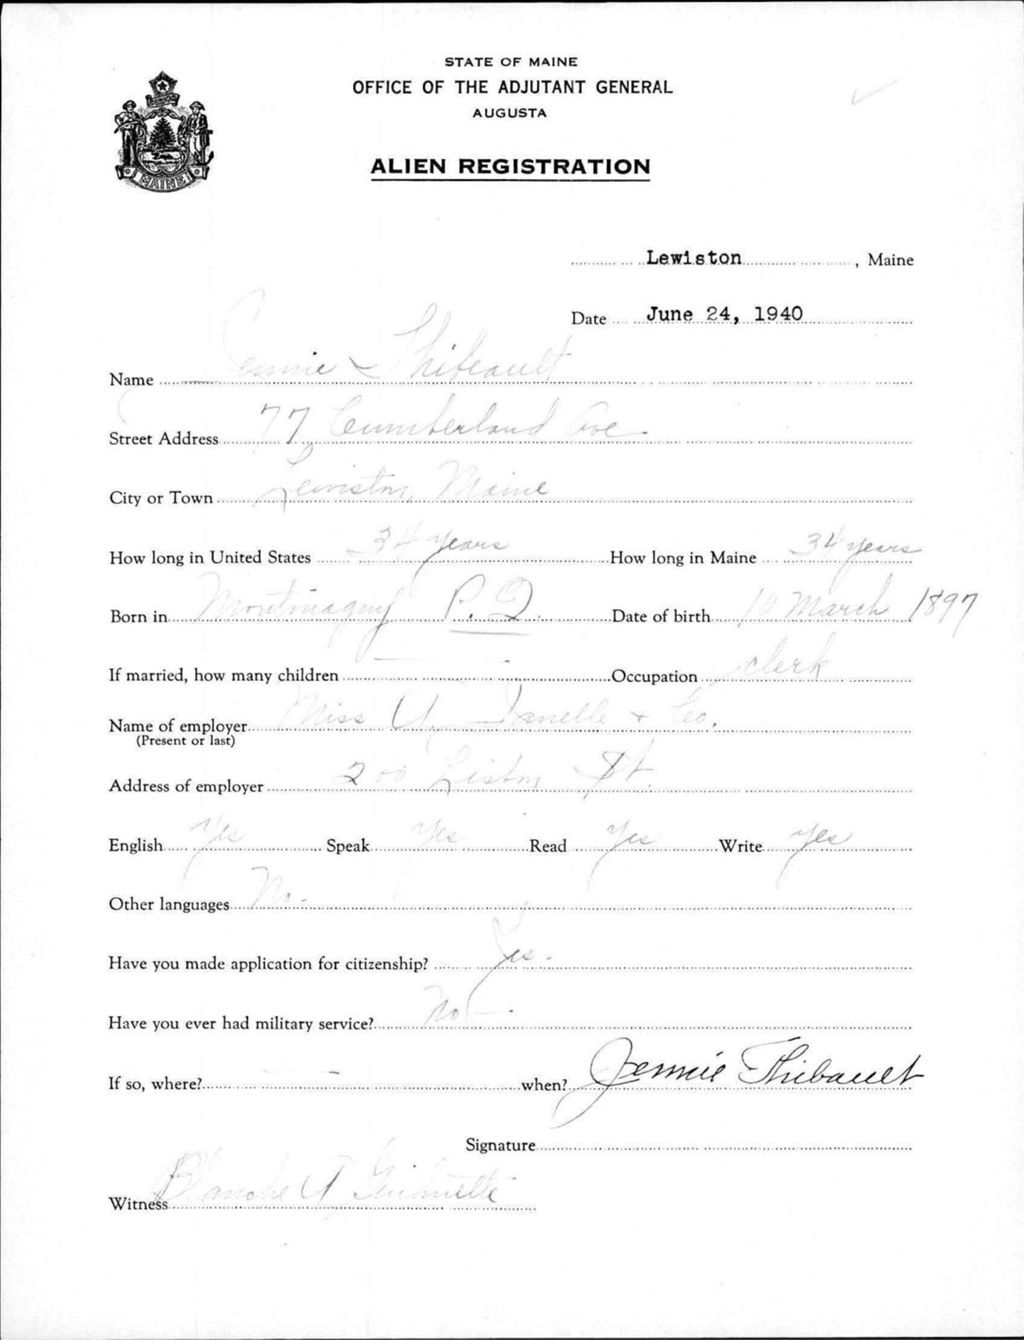 STATE OF MAINE
OFFICE OF THE ADJUTANT GENERAL
AUGUSTA
MAINE
ALIEN REGISTRATION
Lewiston, Maine
Date June 24, 1940
Name Jennie Thibeault
Street Address 77 Cumberland Ave
City or Town Lewiston, Maine
How long in United States 34 years How long in Maine 34 years
Born in Montmagny P.Q. Date of birth 10 March 1897
If married, how many children — Occupation clerk
Name of employer Miss A. Janelle & Co.
(Present or last)
Address of employer 200 Lisbon St.
English Yes Speak Yes Read Yes Write Yes
Other languages No -
Have you made application for citizenship? Yes -
Have you ever had military service? No -
If so, where? - when? Jennie Thibault
Signature
Witness Blanche